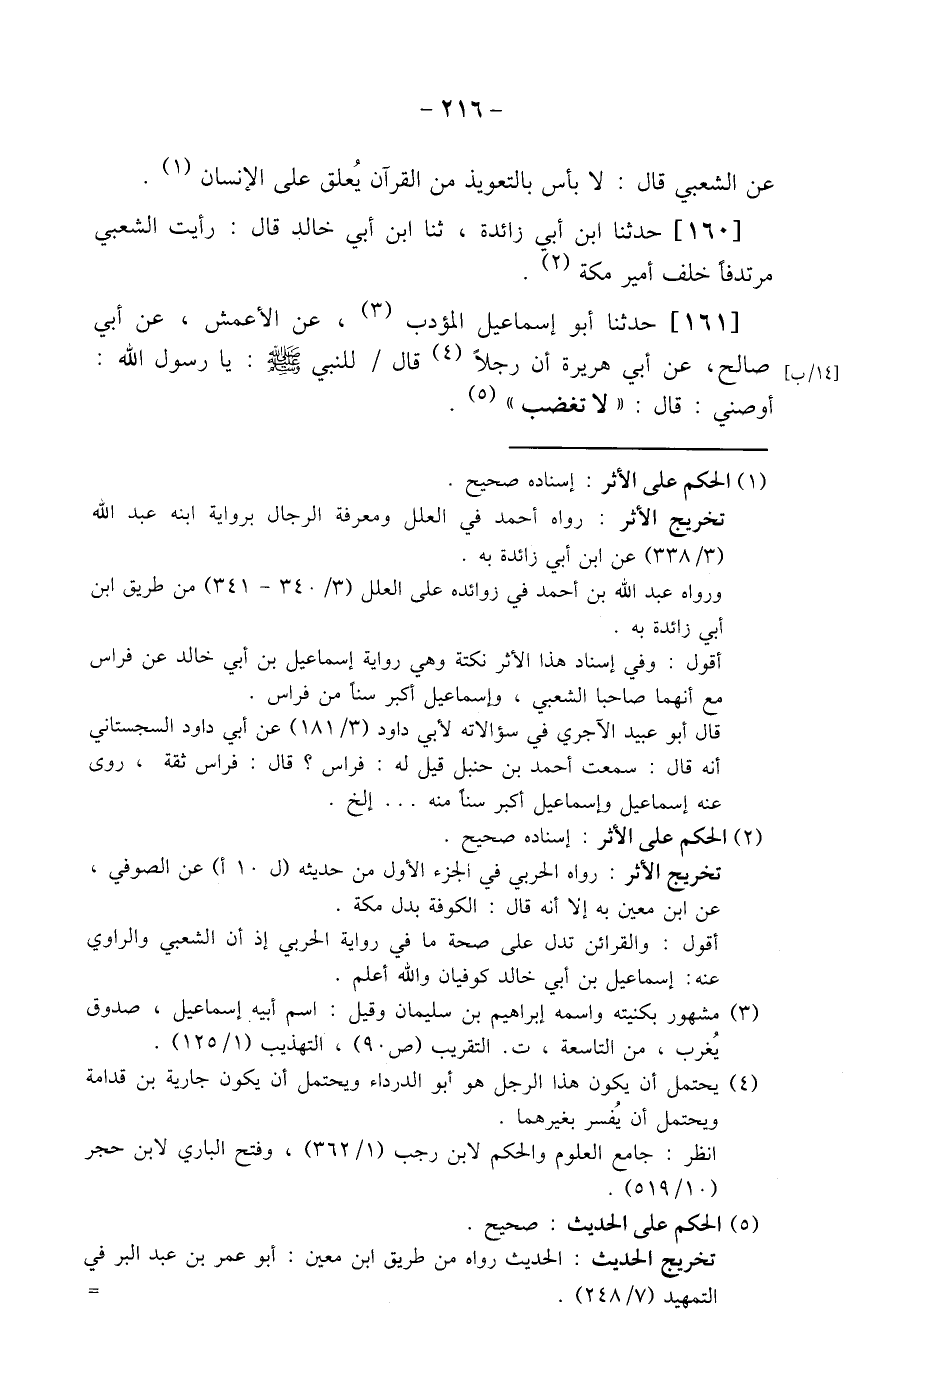 - ٢١٦ -
عن الشعبي قال : لا بأس بالتعويذ من القرآن يُعلق على الإنسان (١) .
[١٦٠] حدثنا ابن أبي زائدة ، ثنا ابن أبي خالد قال : رأيت الشعبي
مرتدفاً خلف أمير مكة (٢) .
[١٦١] حدثنا أبو إسماعيل المؤدب (٣) ، عن الأعمش ، عن أبي
صالح، عن أبي هريرة أن رجلاً (٤) قال / للنبي ﷺ : يا رسول الله : [١٤/ب]
أوصني : قال : « لا تغضب » (٥) .
(١) الحكم على الأثر : إسناده صحيح .
تخريج الأثر : رواه أحمد في العلل ومعرفة الرجال برواية ابنه عبد الله
(٣/ ٣٣٨) عن ابن أبي زائدة به .
ورواه عبد الله بن أحمد في زوائده على العلل (٣/ ٣٤٠ - ٣٤١) من طريق ابن
أبي زائدة به .
أقول : وفي إسناد هذا الأثر نكتة وهي رواية إسماعيل بن أبي خالد عن فراس
مع أنهما صاحبا الشعبي ، وإسماعيل أكبر سناً من فراس .
قال أبو عبيد الآجري في سؤالاته لأبي داود (٣/ ١٨١) عن أبي داود السجستاني
أنه قال : سمعت أحمد بن حنبل قيل له : فراس ؟ قال : فراس ثقة ، روى
عنه إسماعيل وإسماعيل أكبر سناً منه ... إلخ .
(٢) الحكم على الأثر : إسناده صحيح .
تخريج الأثر : رواه الحربي في الجزء الأول من حديثه (ل ١٠ أ) عن الصوفي ،
عن ابن معين به إلا أنه قال : الكوفة بدل مكة .
أقول : والقرائن تدل على صحة ما في رواية الحربي إذ أن الشعبي والراوي
عنه: إسماعيل بن أبي خالد كوفيان والله أعلم .
(٣) مشهور بكنيته واسمه إبراهيم بن سليمان وقيل : اسم أبيه إسماعيل ، صدوق
يُغرب ، من التاسعة ، ت. التقريب (ص٩٠) ، التهذيب (١/ ١٢٥) .
(٤) يحتمل أن يكون هذا الرجل هو أبو الدرداء ويحتمل أن يكون جارية بن قدامة
ويحتمل أن يُفسر بغيرهما .
انظر : جامع العلوم والحكم لابن رجب (١/ ٣٦٢) ، وفتح الباري لابن حجر
(١٠/ ٥١٩) .
(٥) الحكم على الحديث : صحيح .
تخريج الحديث : الحديث رواه من طريق ابن معين : أبو عمر بن عبد البر في
التمهيد (٧/ ٢٤٨) . =